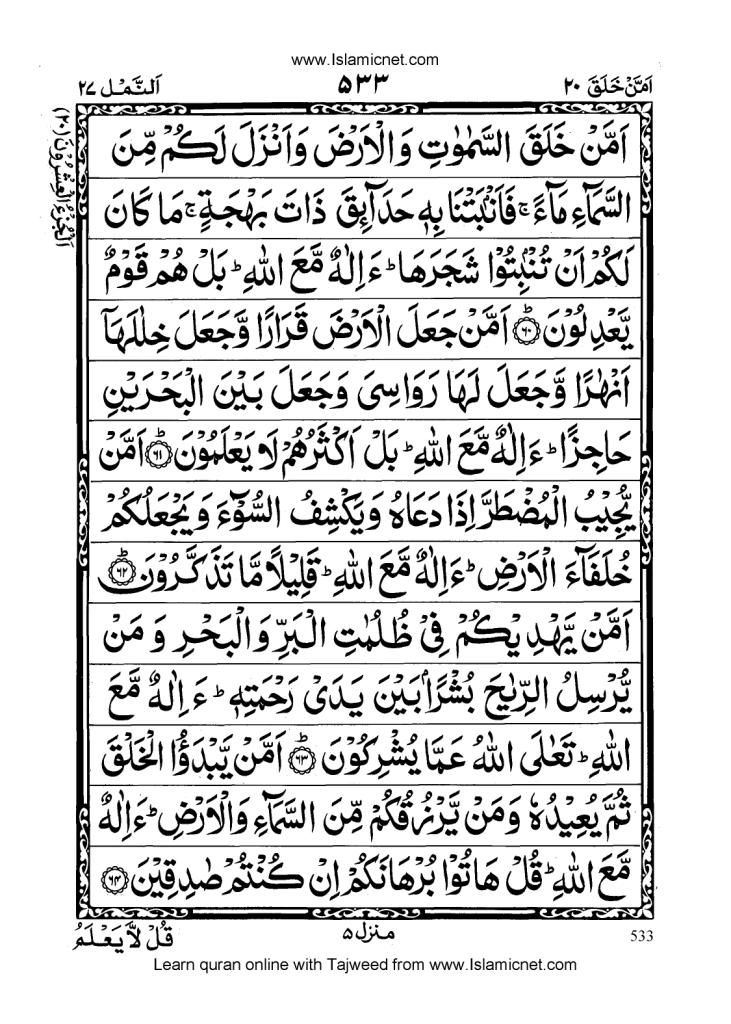 www.Islamicnet.com
اَمَّنْ خَلَقَ ٢٠ ۵۳۳ اَلنَّمْل ٢٧
اَلْجُزْءُ الْعِشْرُوْنَ (٢٠)
اَمَّنْ خَلَقَ السَّمٰوٰتِ وَالْاَرْضَ وَاَنْزَلَ لَكُمْ مِّنَ
السَّمَآءِ مَآءًۚ فَاَنْۢبَتْنَا بِهٖ حَدَآئِقَ ذَاتَ بَهْجَةٍۚ مَا كَانَ
لَكُمْ اَنْ تُنْۢبِتُوْا شَجَرَهَاؕ ءَاِلٰهٌ مَّعَ اللّٰهِؕ بَلْ هُمْ قَوْمٌ
يَّعْدِلُوْنَؕ ﴿٦٠﴾ اَمَّنْ جَعَلَ الْاَرْضَ قَرَارًا وَّجَعَلَ خِلٰلَهَاۤ
اَنْهٰرًا وَّجَعَلَ لَهَا رَوَاسِىَ وَجَعَلَ بَيْنَ الْبَحْرَيْنِ
حَاجِزًاؕ ءَاِلٰهٌ مَّعَ اللّٰهِؕ بَلْ اَكْثَرُهُمْ لَا يَعْلَمُوْنَؕ ﴿٦١﴾ اَمَّنْ
يُّجِيْبُ الْمُضْطَرَّ اِذَا دَعَاهُ وَيَكْشِفُ السُّوْٓءَ وَيَجْعَلُكُمْ
خُلَفَآءَ الْاَرْضِؕ ءَاِلٰهٌ مَّعَ اللّٰهِؕ قَلِيْلًا مَّا تَذَكَّرُوْنَؕ ﴿٦٢﴾
اَمَّنْ يَّهْدِيْكُمْ فِىْ ظُلُمٰتِ الْبَرِّ وَالْبَحْرِ وَمَنْ
يُّرْسِلُ الرِّيٰحَ بُشْرًۢا بَيْنَ يَدَىْ رَحْمَتِهٖؕ ءَاِلٰهٌ مَّعَ
اللّٰهِؕ تَعٰلَى اللّٰهُ عَمَّا يُشْرِكُوْنَؕ ﴿٦٣﴾ اَمَّنْ يَّبْدَؤُا الْخَلْقَ
ثُمَّ يُعِيْدُهٗ وَمَنْ يَّرْزُقُكُمْ مِّنَ السَّمَآءِ وَالْاَرْضِؕ ءَاِلٰهٌ
مَّعَ اللّٰهِؕ قُلْ هَاتُوْا بُرْهَانَكُمْ اِنْ كُنْتُمْ صٰدِقِيْنَ ﴿٦٤﴾
قُلْ لَّا يَعْلَمُ منزل ۵ 533
Learn quran online with Tajweed from www.Islamicnet.com